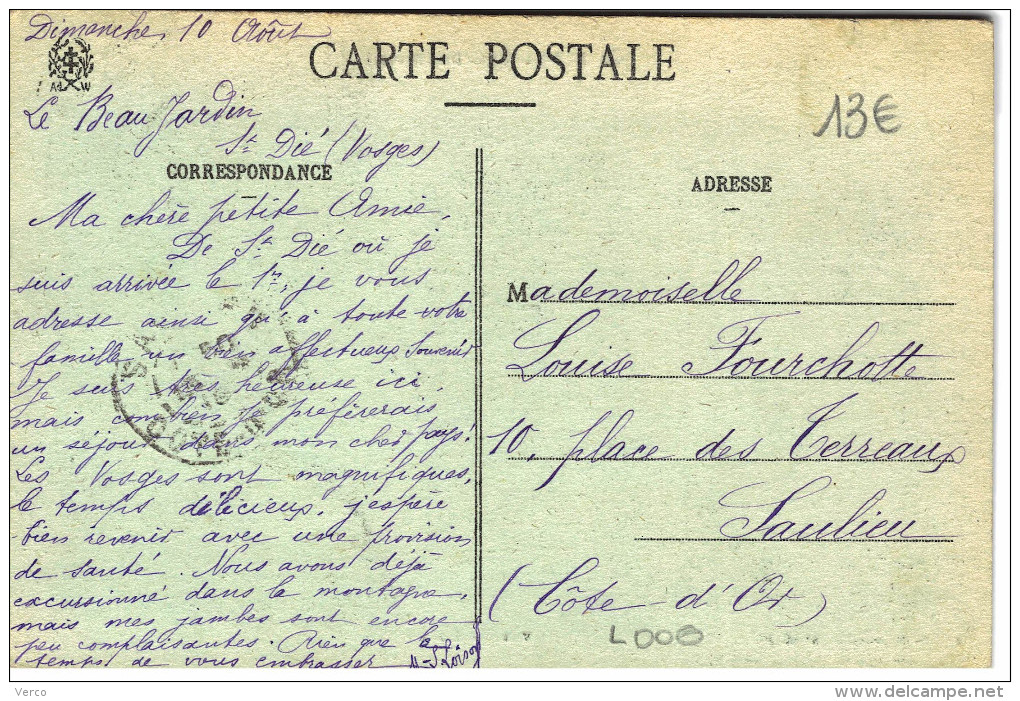 Dimanche 10 Août
CARTE POSTALE
A. W
Le Beau Jardin
St Dié (Vosges)
13€
CORRESPONDANCE
Ma chère petite Amie,
De St Dié où je
suis arrivée le 1er, je vous
adresse ainsi qu'à toute votre
famille un bien affectueux souvenir
Je suis très heureuse ici
mais combien je préfèrerais
un séjour dans mon cher pays!
Les Vosges sont magnifiques,
le temps délicieux, j'espère
bien revenir avec une provision
de santé. Nous avons déjà
excursionné dans la montagne,
mais mes jambes sont encore
peu complaisantes. Rien que le
temps de vous embrasser
ADRESSE
Mademoiselle
Louise Fourchotte
10, place des Terreaux
Saulieu
(Côte-d'Or)
LDOB
Verco
http://verco.delcampe.net